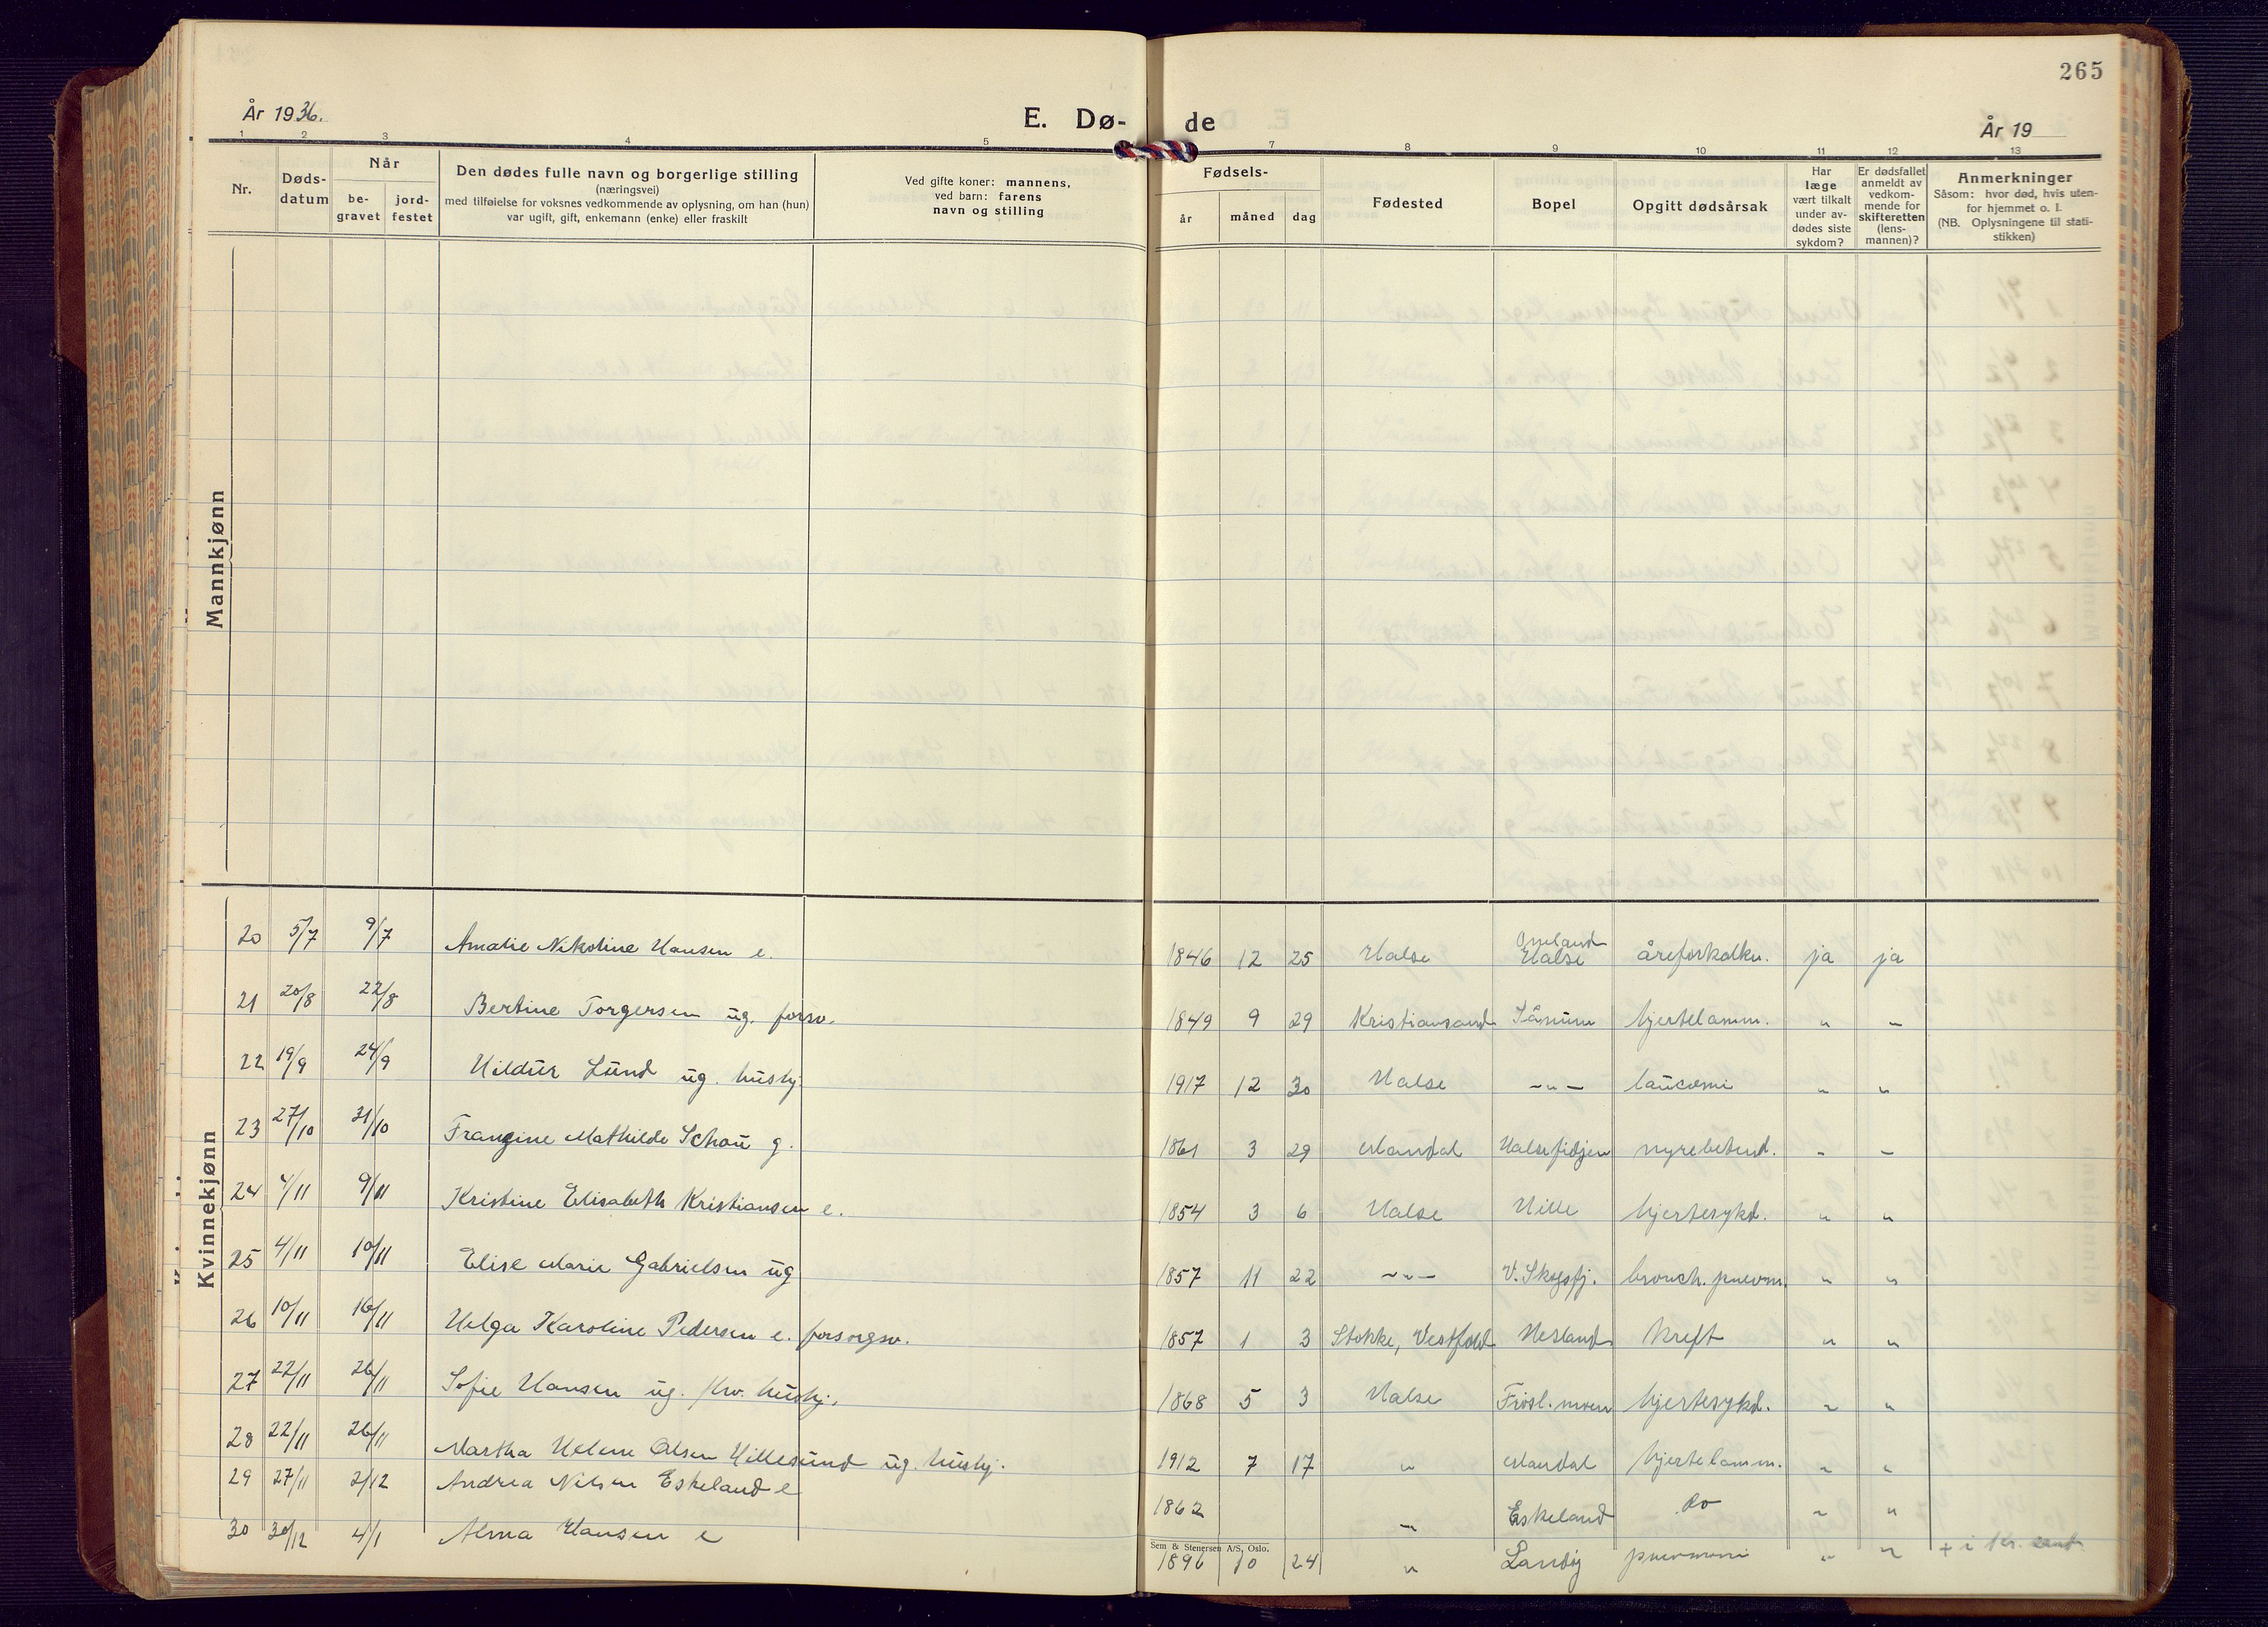 265
År 1936.
E. Dø-
de
År 19
1 2 3 4 5 7 8 9 10 11 12 13
Nr.
Døds-
datum
Når
be-
gravet
jord-
festet
Den dødes fulle navn og borgerlige stilling
(næringsvei)
med tilføielse for voksnes vedkommende av oplysning, om han (hun)
var ugift, gift, enkemann (enke) eller fraskilt
Ved gifte koner: mannens,
ved barn: farens
navn og stilling
Fødsels-
år
måned
dag
Fødested
Bopel
Opgitt dødsårsak
Har
læge
vært tilkalt
under av-
dødes siste
sykdom?
Er dødsfallet
anmeldt av
vedkom-
mende for
skifteretten
(lens-
mannen)?
Anmerkninger
Såsom: hvor død, hvis uten-
for hjemmet o. l.
(NB. Oplysningene til stati-
stikken)
Mannkjønn
Kvinnekjønn
20 5/7 9/7 Amalie Nikoline Hansen e. 1846 12 25 Halse Halse åreforkalkn. ja ja
21 20/8 22/8 Bertine Torgersen ug. forsv. 1849 9 29 Kristiansand Sånum hjertelamm. " –
22 19/9 24/9 Hildur Lund ug. hushj. 1917 12 30 Halse –"– " "
23 27/10 31/10 Frangine Mathilde Schou g. 1861 3 29 Mandal Halsefidjen nyrebetend. – –
24 4/11 9/11 Kristine Elisabeth Kristiansen e. 1854 3 6 Halse Hille hjertesykd. " "
25 4/11 10/11 Elise Marie Gabrielsen ug 1857 11 22 –"– V. Skogsfj. bronch. pneum. " "
26 10/11 16/11 Helga Karoline Pedersen e. forsorgsv. 1857 1 3 Stokke, Vestfold Hesland kreft " "
27 22/11 26/11 Sofie Hansen ug. fhv. hushj. 1868 5 3 Halse Frøsl. moen hjertesykd. " "
28 22/11 26/11 Martha Helene Olsen Hillesund ug. hushj. 1912 7 17 " Mandal hjertelamm. " "
29 27/11 2/12 Andrea Nilsen Eskeland e 1862 " Eskeland do " "
30 30/12 4/1 Alma Hansen e 1896 10 24 " Landøy pneumoni " " + i Kr. sand.
Sem & Stenersen A/S, Oslo.